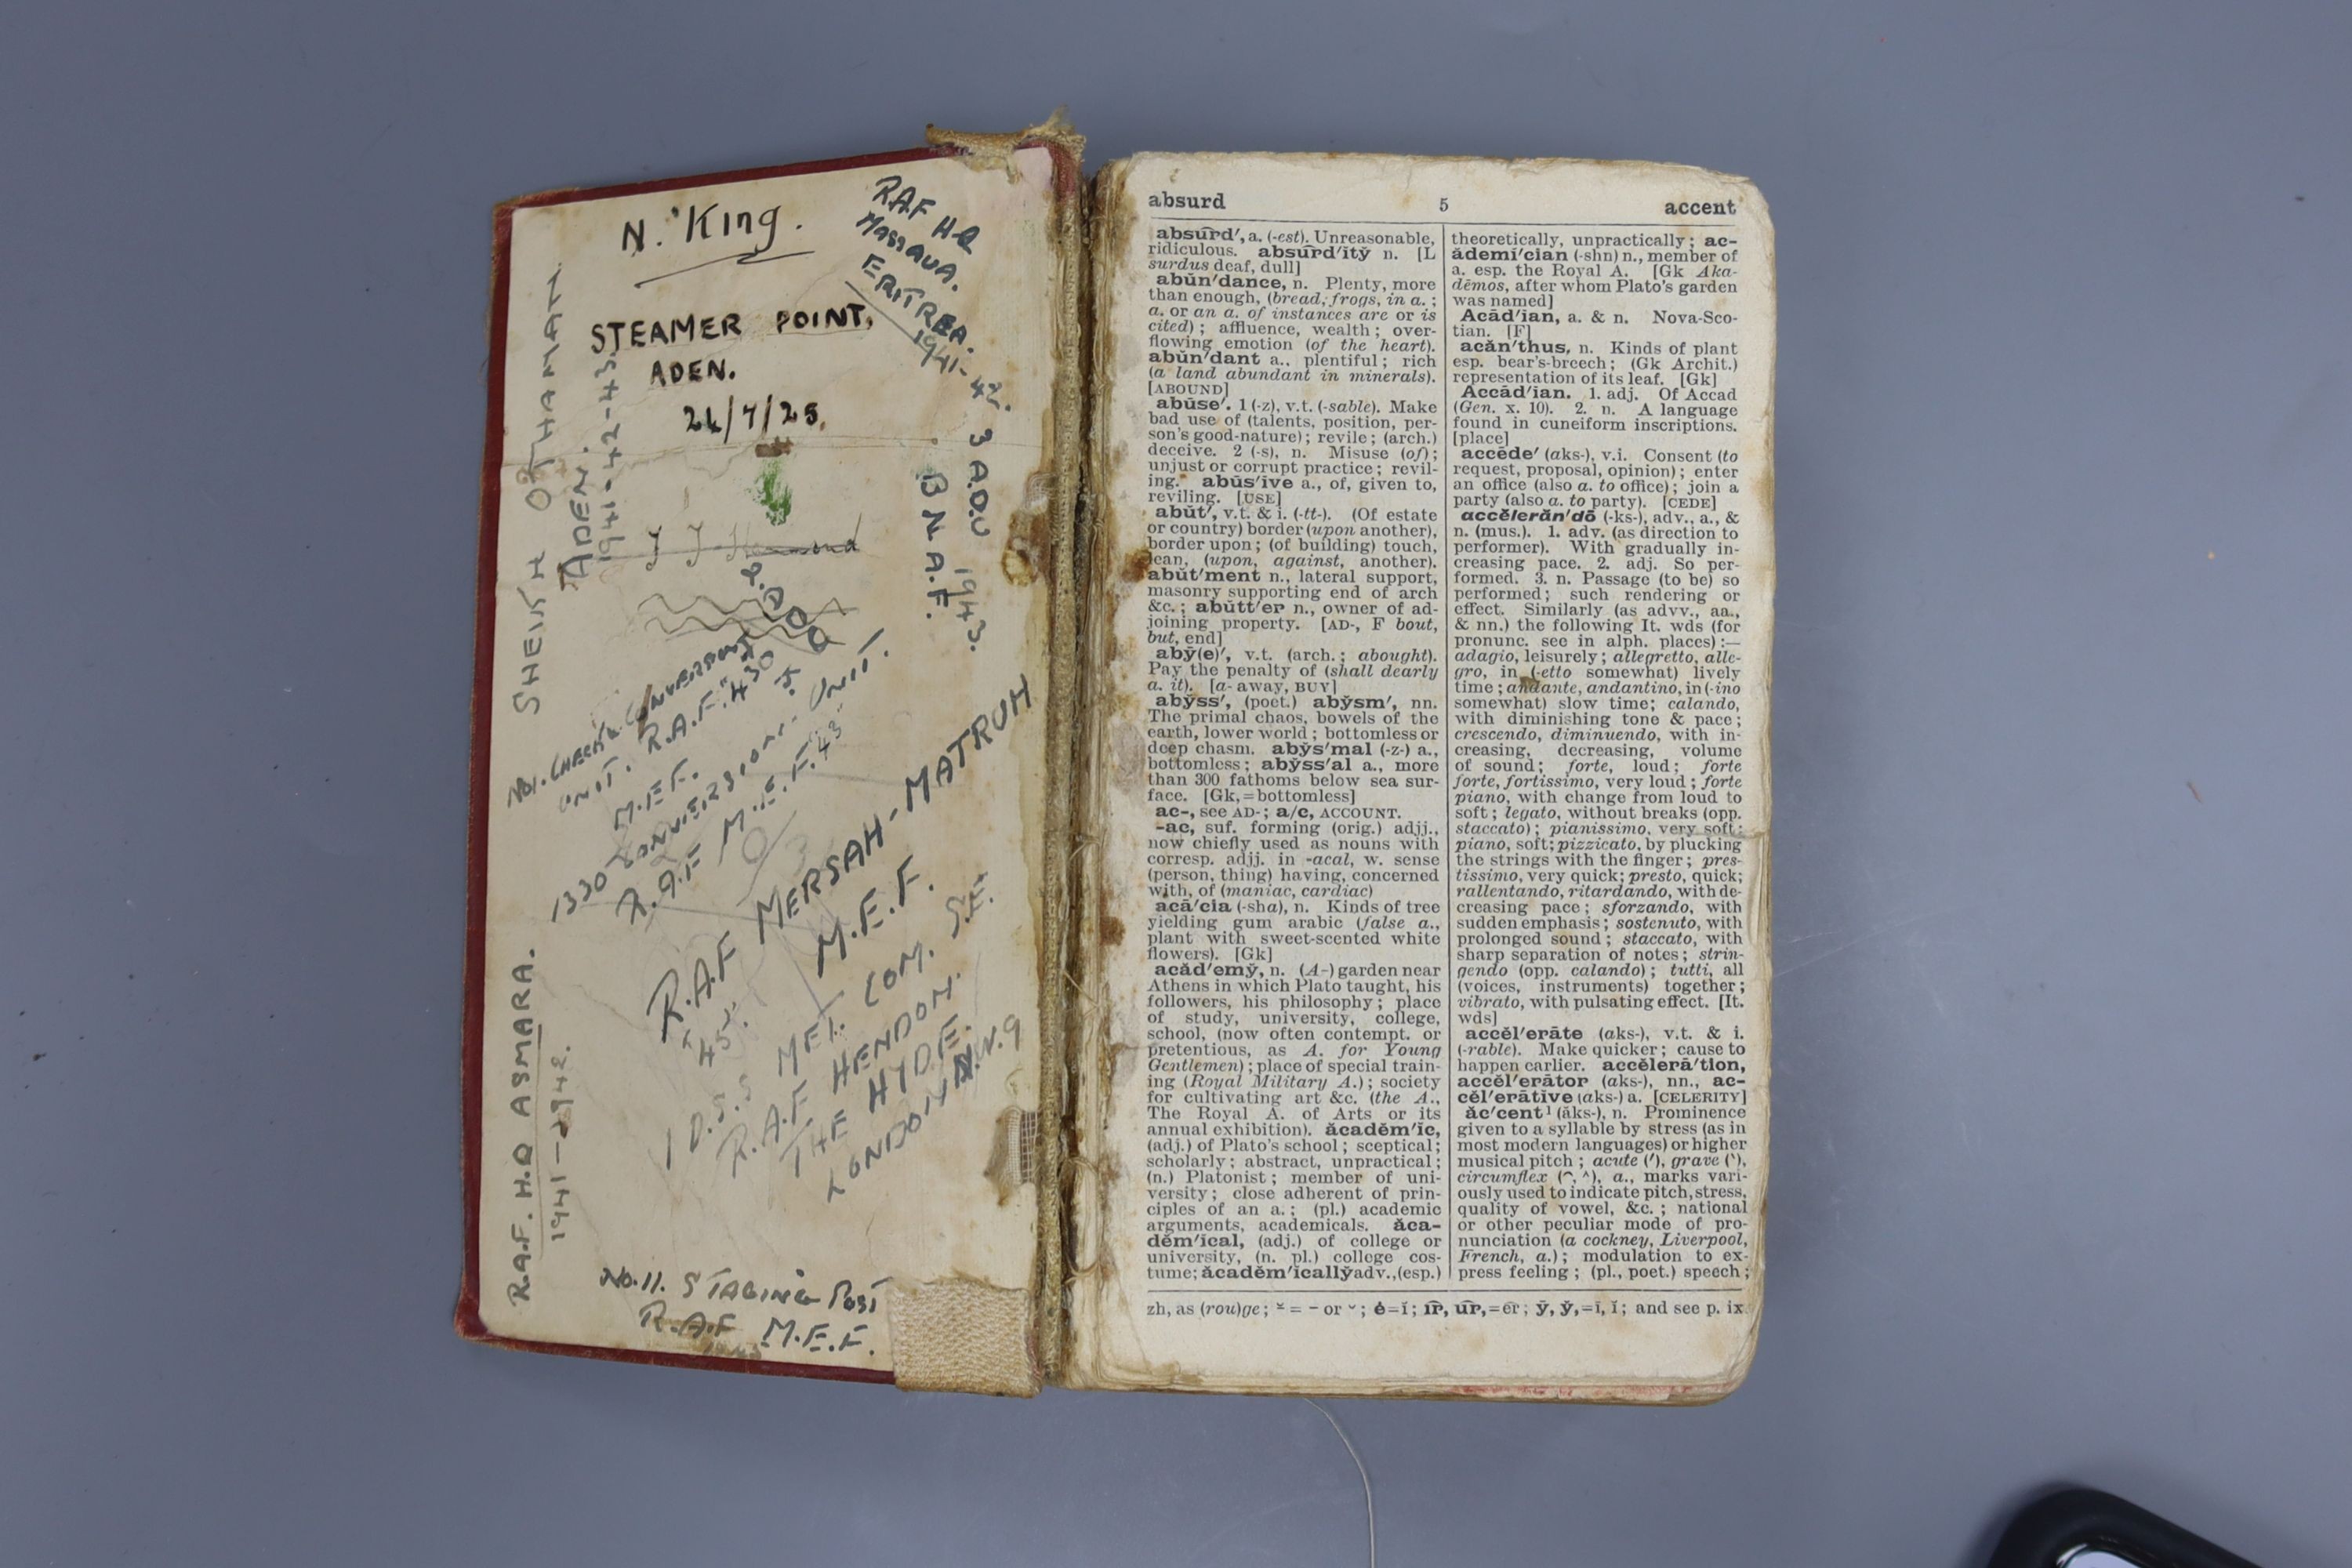 N. King.
STEAMER POINT,
ADEN.
RAF HQ
MASSAUA.
ERITREA.
1941-42.
3 A.D.U 1943.
B N A.F.
SHEIKH OTHAMAN.
ADEN.
1941-42-43.
UNIT. R.A.F.
M.E.F.
1330 CONVERSION. UNIT.
R.A.F M.E.F. 43
R.A.F MERSAH-MATRUH
M.E.F.
45.
MET. COM. S.E.
R.A.F HENDON.
THE HYDE.
LONDON N.W.9
R.A.F. H.Q ASMARA.
1941-1942.
No. 11. STAGING POST
R.A.F M.E.F.
absurd 5 accent
absûrd′, a. (-est). Unreasonable,
ridiculous. absûrd′ĭtў n. [L
surdus deaf, dull]
abŭn′dance, n. Plenty, more
than enough, (bread, frogs, in a. ;
a. or an a. of instances are or is
cited) ; affluence, wealth ; over-
flowing emotion (of the heart).
abŭn′dant a., plentiful ; rich
(a land abundant in minerals).
[ABOUND]
abūse′. 1 (-z), v.t. (-sable). Make
bad use of (talents, position, per-
son's good-nature) ; revile ; (arch.)
deceive. 2 (-s), n. Misuse (of) ;
unjust or corrupt practice ; revil-
ing. abūs′ive a., of, given to,
reviling. [USE]
abŭt′, v.t. & i. (-tt-). (Of estate
or country) border (upon another),
border upon ; (of building) touch,
lean, (upon, against, another).
abŭt′ment n., lateral support,
masonry supporting end of arch
&c. ; abŭtt′er n., owner of ad-
joining property. [AD-, F bout,
but, end]
abў(e)′, v.t. (arch. ; abought).
Pay the penalty of (shall dearly
a. it). [a- away, BUY]
abўss′, (poet.) abўsm′, nn.
The primal chaos, bowels of the
earth, lower world ; bottomless or
deep chasm. abўs′mal (-z-) a.,
bottomless ; abўss′al a., more
than 300 fathoms below sea sur-
face. [Gk,=bottomless]
ac-, see AD- ; a/c, ACCOUNT.
-ac, suf. forming (orig.) adjj.,
now chiefly used as nouns with
corresp. adjj. in -acal, w. sense
(person, thing) having, concerned
with, of (maniac, cardiac)
acā′cia (-sha), n. Kinds of tree
yielding gum arabic (false a.,
plant with sweet-scented white
flowers). [Gk]
acăd′emў, n. (A-) garden near
Athens in which Plato taught, his
followers, his philosophy ; place
of study, university, college,
school, (now often contempt. or
pretentious, as A. for Young
Gentlemen) ; place of special train-
ing (Royal Military A.) ; society
for cultivating art &c. (the A.,
The Royal A. of Arts or its
annual exhibition). ăcadĕm′ĭc,
(adj.) of Plato's school ; sceptical ;
scholarly ; abstract, unpractical ;
(n.) Platonist ; member of uni-
versity ; close adherent of prin-
ciples of an a. ; (pl.) academic
arguments, academicals. ăca-
dĕm′ical, (adj.) of college or
university, (n. pl.) college cos-
tume; ăcadĕm′ĭcallў adv., (esp.)
theoretically, unpractically ; ac-
ădemi′cian (-shn) n., member of
a. esp. the Royal A. [Gk Aka-
dēmos, after whom Plato's garden
was named]
Acād′ian, a. & n. Nova-Sco-
tian. [F]
acăn′thus, n. Kinds of plant
esp. bear's-breech ; (Gk Archit.)
representation of its leaf. [Gk]
Accād′ian. 1. adj. Of Accad
(Gen. x. 10). 2. n. A language
found in cuneiform inscriptions.
[place]
accēde′ (aks-), v.i. Consent (to
request, proposal, opinion) ; enter
an office (also a. to office) ; join a
party (also a. to party). [CEDE]
accĕlerăn′dō (-ks-), adv., a., &
n. (mus.). 1. adv. (as direction to
performer). With gradually in-
creasing pace. 2. adj. So per-
formed. 3. n. Passage (to be) so
performed ; such rendering or
effect. Similarly (as advv., aa.,
& nn.) the following It. wds (for
pronunc. see in alph. places) :—
adagio, leisurely ; allegretto, alle-
gro, in (-etto somewhat) lively
time ; andante, andantino, in (-ino
somewhat) slow time ; calando,
with diminishing tone & pace ;
crescendo, diminuendo, with in-
creasing, decreasing, volume
of sound ; forte, loud ; forte
forte, fortissimo, very loud ; forte
piano, with change from loud to
soft ; legato, without breaks (opp.
staccato) ; pianissimo, very soft ;
piano, soft ; pizzicato, by plucking
the strings with the finger ; pres-
tissimo, very quick ; presto, quick ;
rallentando, ritardando, with de-
creasing pace ; sforzando, with
sudden emphasis ; sostenuto, with
prolonged sound ; staccato, with
sharp separation of notes ; strin-
gendo (opp. calando) ; tutti, all
(voices, instruments) together ;
vibrato, with pulsating effect. [It.
wds]
accĕl′erāte (aks-), v.t. & i.
(-rable). Make quicker ; cause to
happen earlier. accĕlerā′tion,
accĕl′erātor (aks-), nn., ac-
cĕl′erātive (aks-) a. [CELERITY]
ăc′cent¹ (ăks-), n. Prominence
given to a syllable by stress (as in
most modern languages) or higher
musical pitch ; acute (′), grave (‵),
circumflex (⌒, ^), a., marks vari-
ously used to indicate pitch, stress,
quality of vowel, &c. ; national
or other peculiar mode of pro-
nunciation (a cockney, Liverpool,
French, a.) ; modulation to ex-
press feeling ; (pl., poet.) speech ;
zh, as (rou)ge ; ⏓ = – or ˘ ; ė=ĭ ; îr, ûr,=êr ; ȳ, ў,=ī, ĭ ; and see p. ix